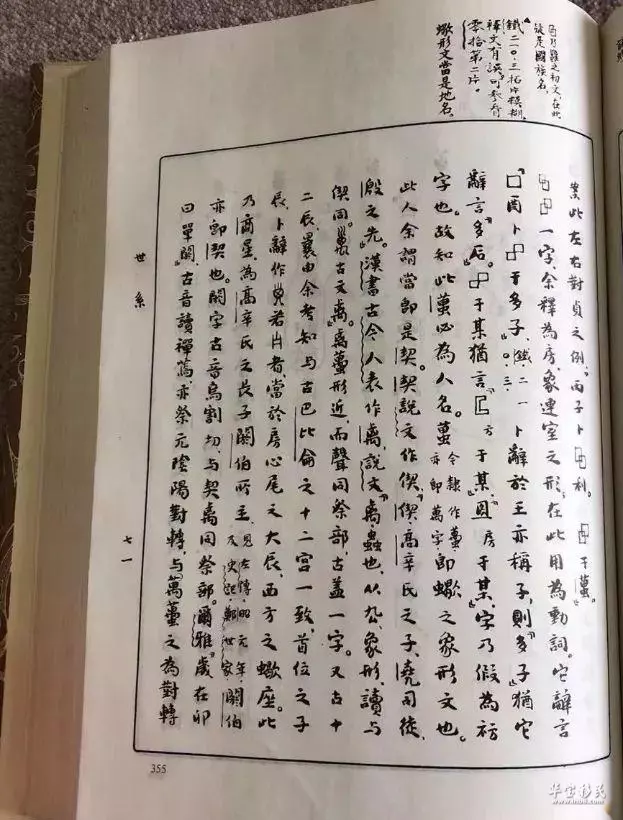 乃 之初文,在此
疑是國族名。
鐵二一〇.三拓片模糊,
釋文有誤,可參看
零拾第二片。
蠍形文當是地名。
業此左右對貞之例。丙子卜 利。 于萬。
一字,余釋為房,象連室之形,在此用為動詞。它辭言
卜 于多子』鐵、二一〇.三.卜辭於王亦稱子,則『多子』猶它
辭言『多后』。 于某猶言『匚 方于某』『 房于某』,字乃假為祊
字也。故知此萬必為人名。萬 今隸作蠆亦即萬字 即蠍之象形文也。
此人余謂當即是契。契說文作偰,『偰,高辛氏之子,堯司徒,
殷之先。』漢書古今人表作卨,說文『卨,蟲也,从厹,象形,讀與
偰同。 古文卨。』卨蠆形近,而聲同祭部,古蓋一字。又古十
二辰,曩由余考知與古巴比侖之十二宮一致,首位之子
辰,卜辭作 若 者,當於房心尾之大辰,西方之蠍座。此
乃商星,為高辛氏之長子閼伯所主,見左傳昭元年及史記鄭世家 閼伯
亦即契也。閼字古音烏割切,與契卨同祭部。爾雅『歲在卯
曰單閼』,古音讀蟬蔫亦祭元陰陽對轉,與萬蠆之為對轉
世系
七一
355
华宝移民